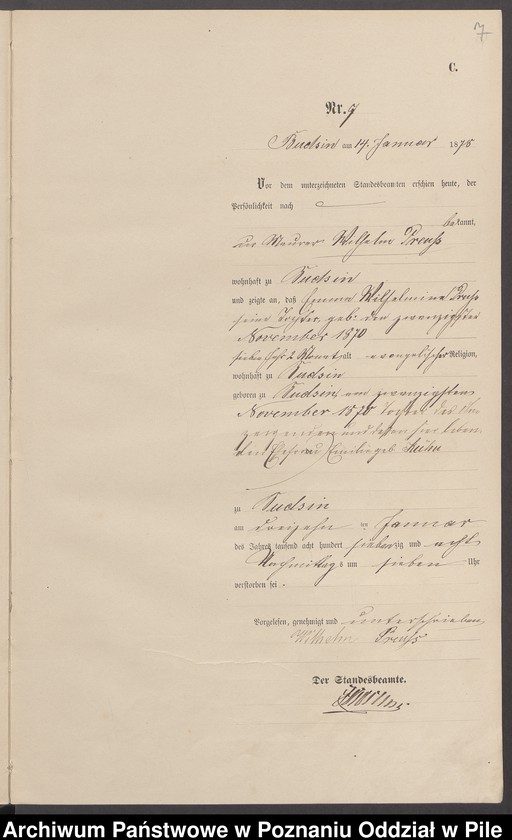 7
C.
Nr. 7
Budsin am 14. Januar 1878
Vor dem unterzeichneten Standesbeamten erschien heute, der
Persönlichkeit nach
bekannt,
der Maurer Wilhelm Preuß
wohnhaft zu Budsin
und zeigte an, daß Emma Wilhelmine Preuß
seine Tochter, geb. den zwanzigsten
November 1870
sieben Jahr 2 Monat alt evangelischer Religion,
wohnhaft zu Budsin
geboren zu Budsin am zwanzigsten
November 1870 Tochter des An-
zeigenden und dessen hier leben-
den Ehefrau Emilie geb. Kühn
zu Budsin
am dreizehn ten Januar
des Jahres tausend acht hundert siebenzig und acht
Nachmittags um sieben Uhr
verstorben sei.
Vorgelesen, genehmigt und unterschrieben
Wilhelm Preuß
Der Standesbeamte.
Archiwum Państwowe w Poznaniu Oddział w Pile